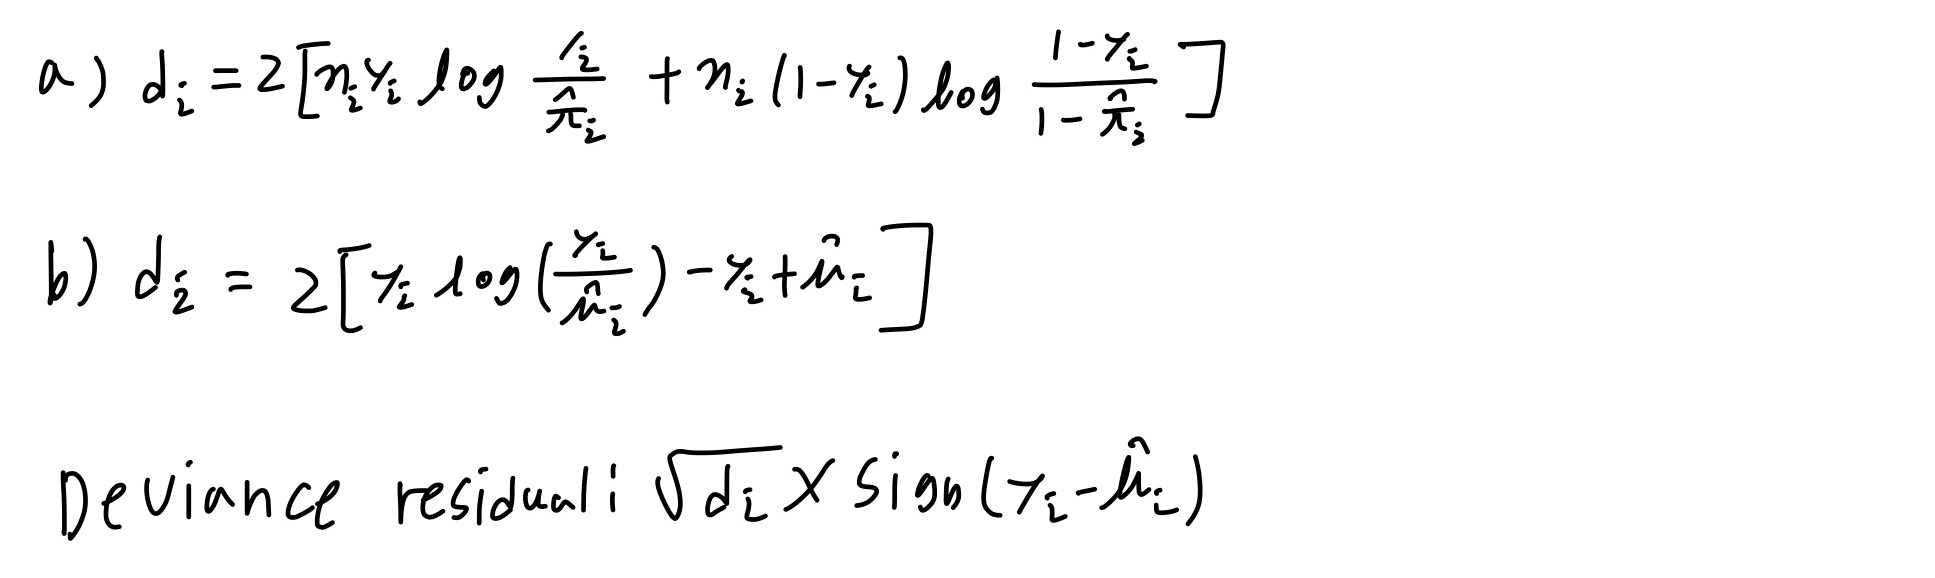 a) dᵢ = 2[nᵢyᵢ log yᵢ/π̂ᵢ + nᵢ(1-yᵢ) log (1-yᵢ)/(1-π̂ᵢ)]
b) dᵢ = 2[yᵢ log(yᵢ/μ̂ᵢ) - yᵢ + μ̂ᵢ]
Deviance residual: √dᵢ × Sign(yᵢ - μ̂ᵢ)